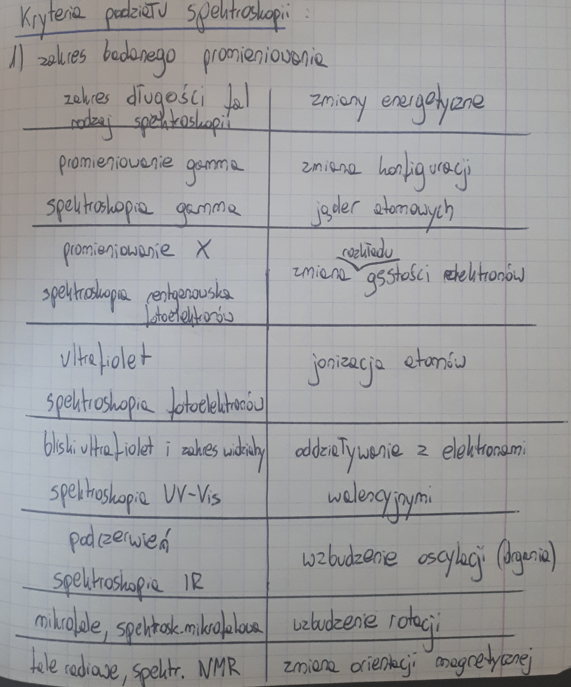 Kryteria podziału spektroskopii:
1) zakres badanego promieniowania
zakres długości fal
rodzaj spektroskopii
zmiany energetyczne
promieniowanie gamma
spektroskopia gamma
zmiana konfiguracji
jąder atomowych
promieniowanie X
spektroskopia rentgenowska
fotoelektronów
rozkładu
zmiana gęstości elektronów
ultrafiolet
spektroskopia fotoelektronów
jonizacja atomów
bliski ultrafiolet i zakres widzialny
spektroskopia UV-Vis
oddziaływanie z elektronami
walencyjnymi
podczerwień
spektroskopia IR
wzbudzenie oscylacji (drgania)
mikrofale, spektrosk. mikrofalowa
wzbudzenie rotacji
fale radiowe, spektr. NMR
zmiana orientacji magnetycznej